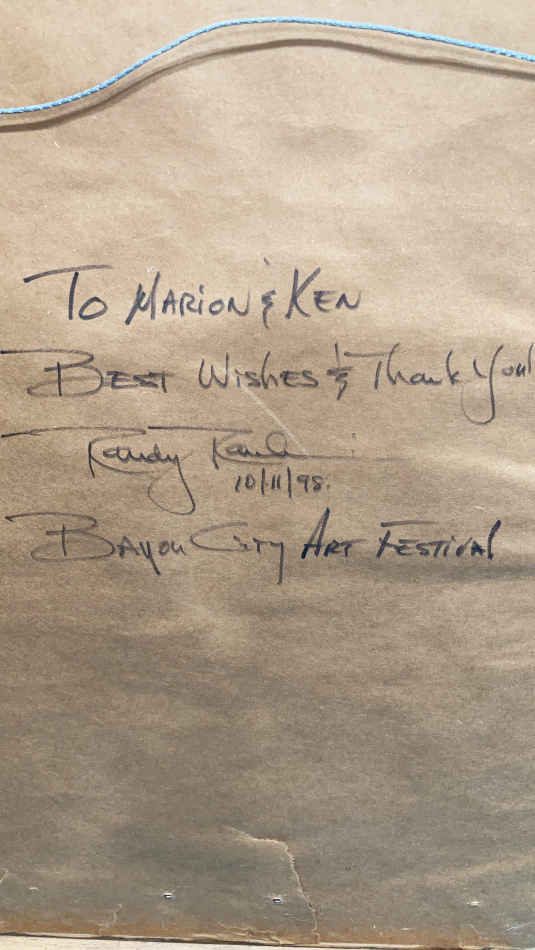 To Marion & Ken
Best Wishes & Thank You!
Randy
10/11/98.
Bayou City Art Festival